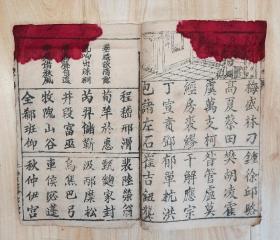 梅盛林刁鍾徐邱駱
高夏蔡田樊胡凌霍
虞萬支柯昝管盧莫
經房裘繆干解應宗
丁宣賁鄧郁單杭洪
包諸左石崔吉鈕龔
程嵇邢滑裴陸榮翁
荀羊於惠甄麴家封
芮羿儲靳汲邴糜松
井段富巫烏焦巴弓
牧隗山谷車侯宓蓬
全郗班仰秋仲伊宮